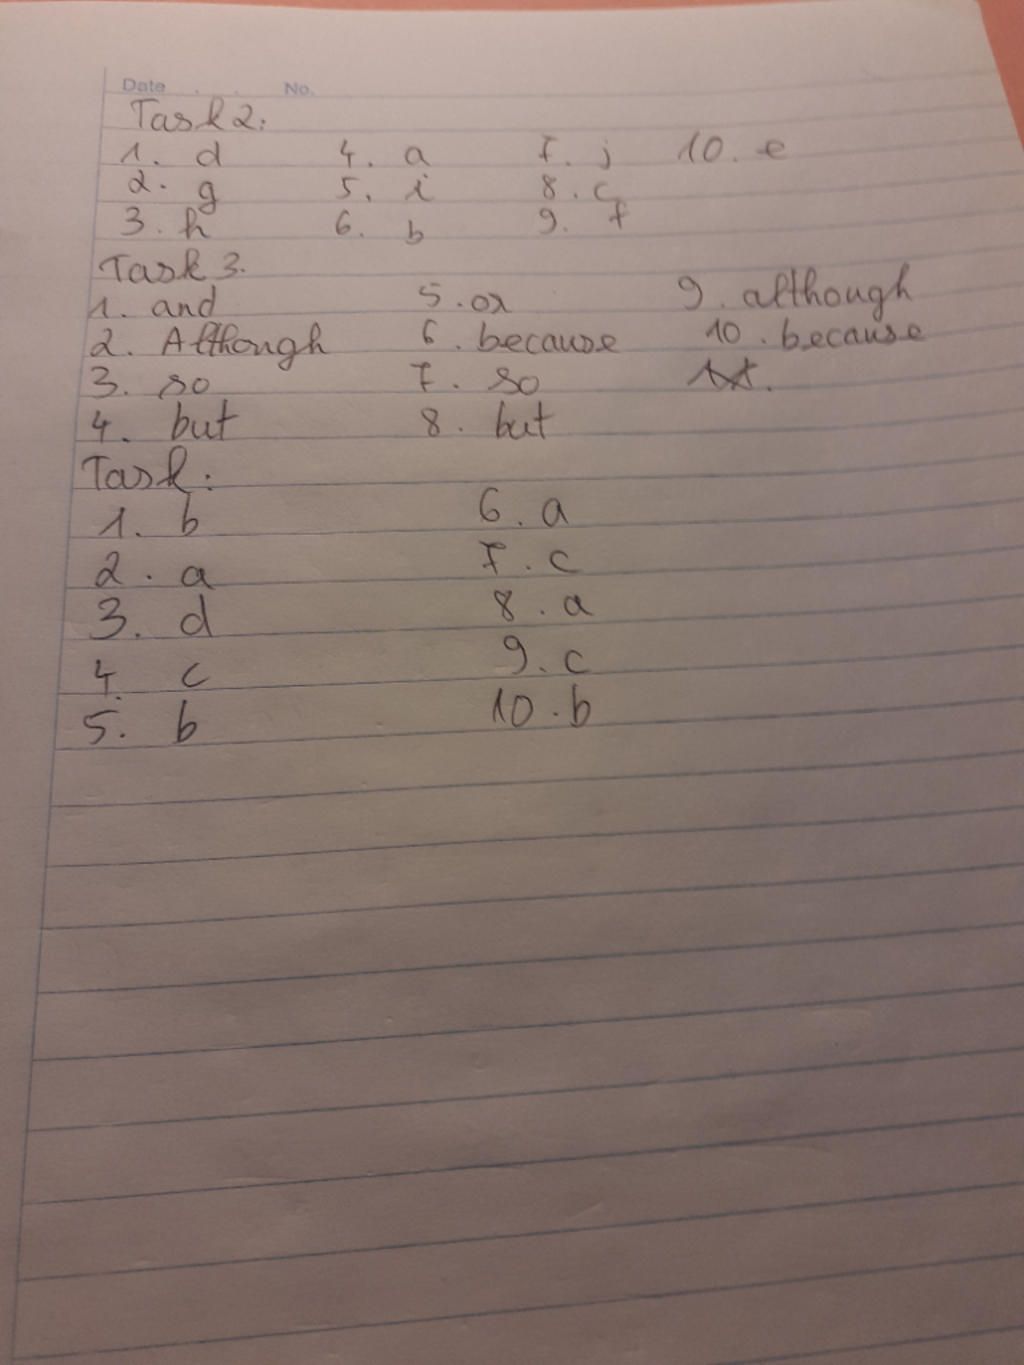 Date . . No.
Task 2:
1. d 4. a 7. j 10. e
2. g 5. i 8. c
3. h 6. b 9. f
Task 3.
1. and 5. or 9. although
2. Although 6. because 10. because
3. so 7. so
4. but 8. but
Task:
1. b 6. a
2. a 7. c
3. d 8. a
4. c 9. c
5. b 10. b